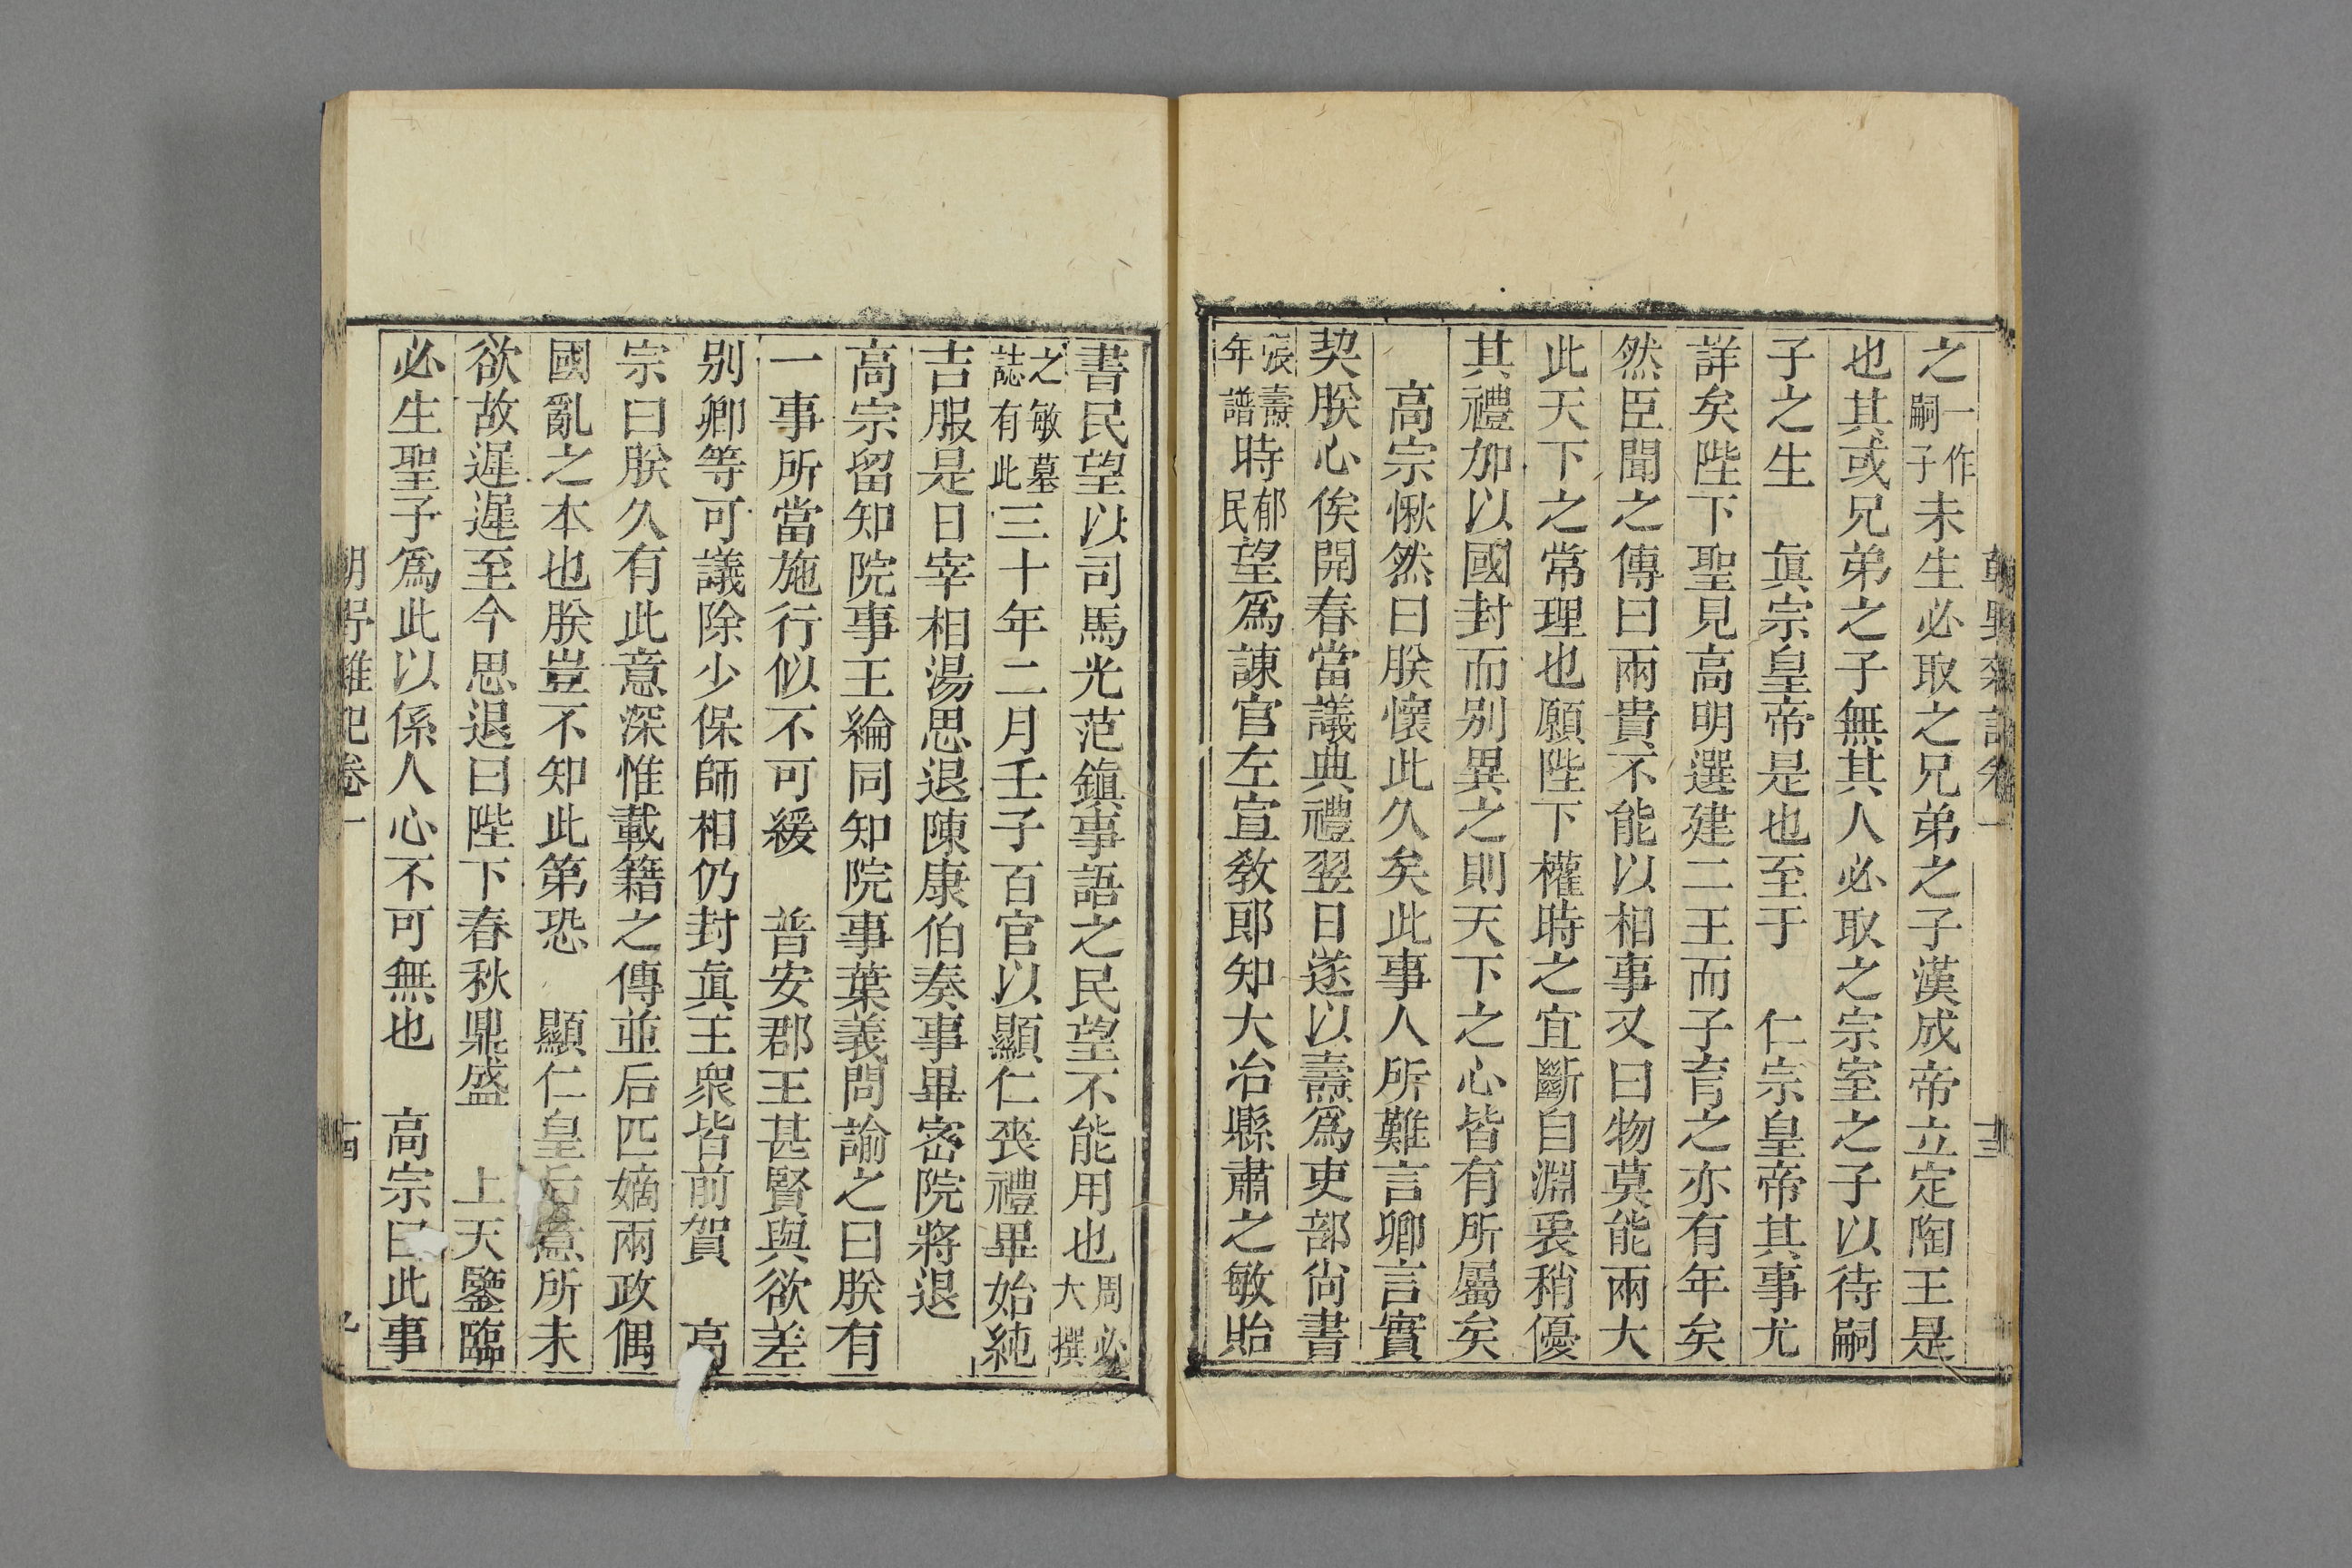 之一作嗣子未生必取之兄弟之子漢成帝立定陶王是
也其或兄弟之子無其人必取之宗室之子以待嗣
子之生　眞宗皇帝是也至于　仁宗皇帝其事尤
詳矣陛下聖見高明選建二王而子育之亦有年矣
然臣聞之傳曰兩貴不能以相事又曰物莫能兩大
此天下之常理也願陛下權時之宜斷自淵衷稍優
其禮加以國封而别異之則天下之心皆有所屬矣
高宗愀然曰朕懷此久矣此事人所難言卿言實
契朕心俟開春當議典禮翌日遂以壽爲吏部尙書
張壽年譜時郁民望爲諫官左宣敎郎知大冶縣肅之敏貽
書民望以司馬光范鎮事語之民望不能用也周必大撰
之敏墓誌有此三十年二月壬子百官以顯仁喪禮畢始純
吉服是日宰相湯思退陳康伯奏事畢密院將退
高宗留知院事王綸同知院事葉義問諭之曰朕有
一事所當施行似不可緩　普安郡王甚賢與欲差
别卿等可議除少保師相仍封眞王衆皆前賀　高
宗曰朕久有此意深惟載籍之傳並后匹嫡兩政偶
國亂之本也朕豈不知此第恐　顯仁皇后意所未
欲故遲遲至今思退曰陛下春秋鼎盛　上天鑒臨
必生聖子爲此以係人心不可無也　高宗曰此事
朝野雜記卷一